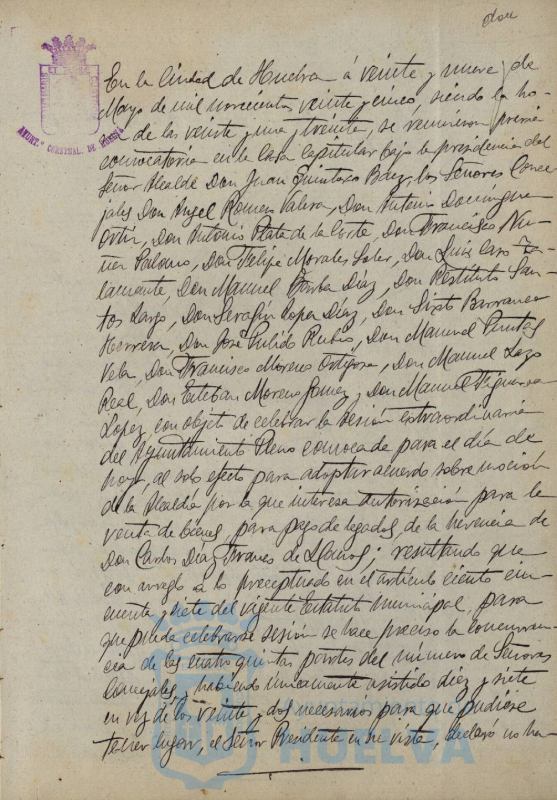 dos
AYUNT.º CONSTNAL. DE HUELVA
En la Ciudad de Huelva á veinte y nueve de
Mayo de mil novecientos veinte y cinco, siendo la ho-
ra de las veinte y una y treinta, se reunieron primera
convocatoria en la Casa Capitular bajo la presidencia del
Señor Alcalde Don Juan Quintero Baez, los Señores Conce-
jales Don Angel Romero Valera, Don Antonio Domínguez
Ortiz, Don Antonio Plata de la Corte, Don Francisco Nu-
ñez Palomo, Don Felipe Morales Soler, Don Luis Caso
lamonte, Don Manuel Borba Díaz, Don Restituto San-
tos Lazo, Don Serafín Lopez Díaz, Don Sixto Barranco
Herrera, Don José Pulido Rubio, Don Manuel Puntas
Vela, Don Francisco Moreno Ortigosa, Don Manuel Lazo
Real, Don Esteban Moreno Gomez y Don Manuel Figueroa
Lopez con objeto de celebrar la sesión extraordinaria
del Ayuntamiento Pleno convocada para el día de
hoy, al solo efecto para adoptar acuerdo sobre moción
de la Alcaldía por la que interesa autorización para la
venta de bienes, para pago de legados, de la herencia de
Don Carlos Díaz Franco de Llanos; resultando que
con arreglo a lo preceptuado en el artículo ciento cin-
cuenta y siete del vigente Estatuto Municipal, para
que pueda celebrarse sesión se hace preciso la concurren-
cia de las cuatro quintas partes del número de Señores
Concejales, y habiendo unicamente asistido diez y siete
en vez de los veinte y dos necesarios para que pudiese
tener lugar, el Señor Presidente en su vista, declaró no ha-
HUELVA